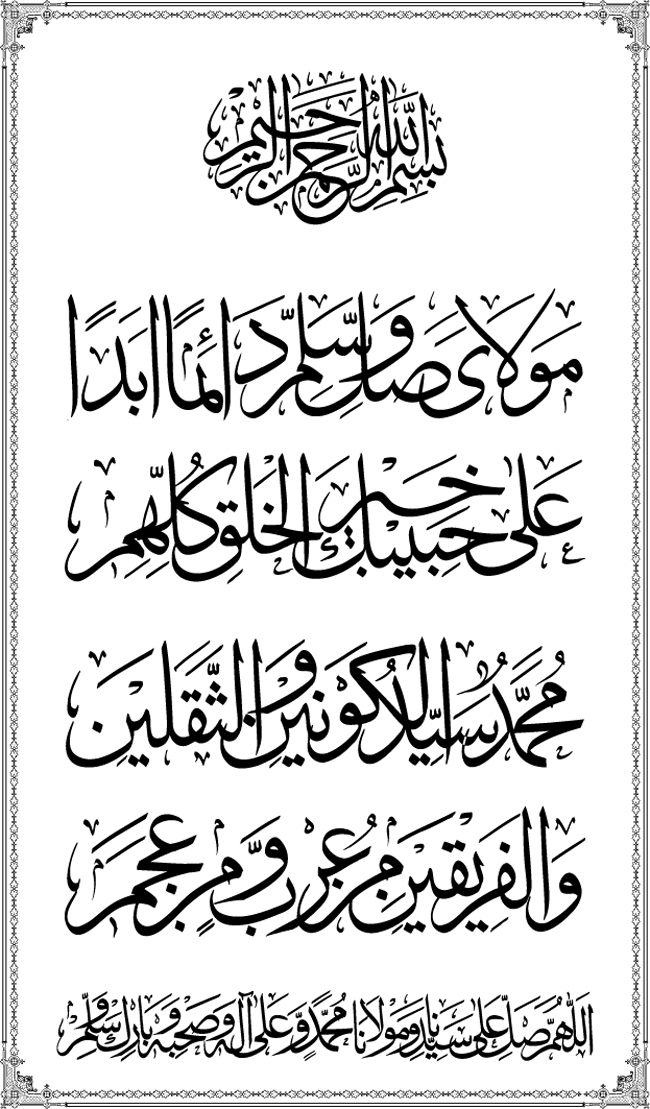 بسم الله الرحمن الرحيم
مَولَاىَ صَلِّ وَسَلِّمْ دَائِمًا اَبَدًا
عَلى حَبِيبِكَ خَيْرِ الْخَلْقِ كُلِّهِمِ
مُحَمَّدٌ سَيِّدُ الْكَوْنَيْنِ وَالثَّقَلَيْنِ
وَالْفَرِيقَيْنِ مِنْ عُرْبٍ وَّمِنْ عَجَمِ
اَللّٰهُمَّ صَلِّ عَلى سَيِّدِنَا وَمَوْلَانَا مُحَمَّدٍ وَّعَلى آلِهِ وَصَحْبِهِ وَبَارِكْ وَسَلِّمْ